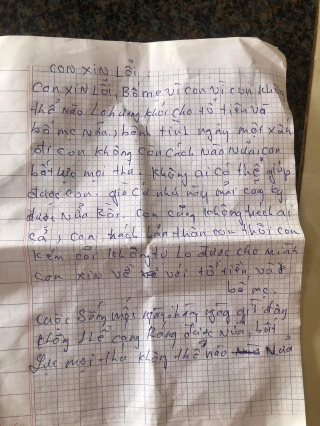 CON XIN LỖI.
Con XIN LỖI, Bố mẹ vì con vì con không
thể nào Lo hương khói cho tổ tiên và
bố mẹ nữa, bệnh tình ngày một xấu
đi con không còn cách nào nữa con
bất lực mọi thứ. không ai có thể giúp
được con. giờ cứ như này mãi cũng ky
được nữa Rồi. con cũng không trách ai
cả, con trách bản thân con thôi con
kém cỏi không tự lo được cho mình
con xin về với tổ tiên và
bố mẹ.
cuộc sống mỗi ngày
không thể cố gắng được nữa, bất
lực mọi thứ không thể nào nữa